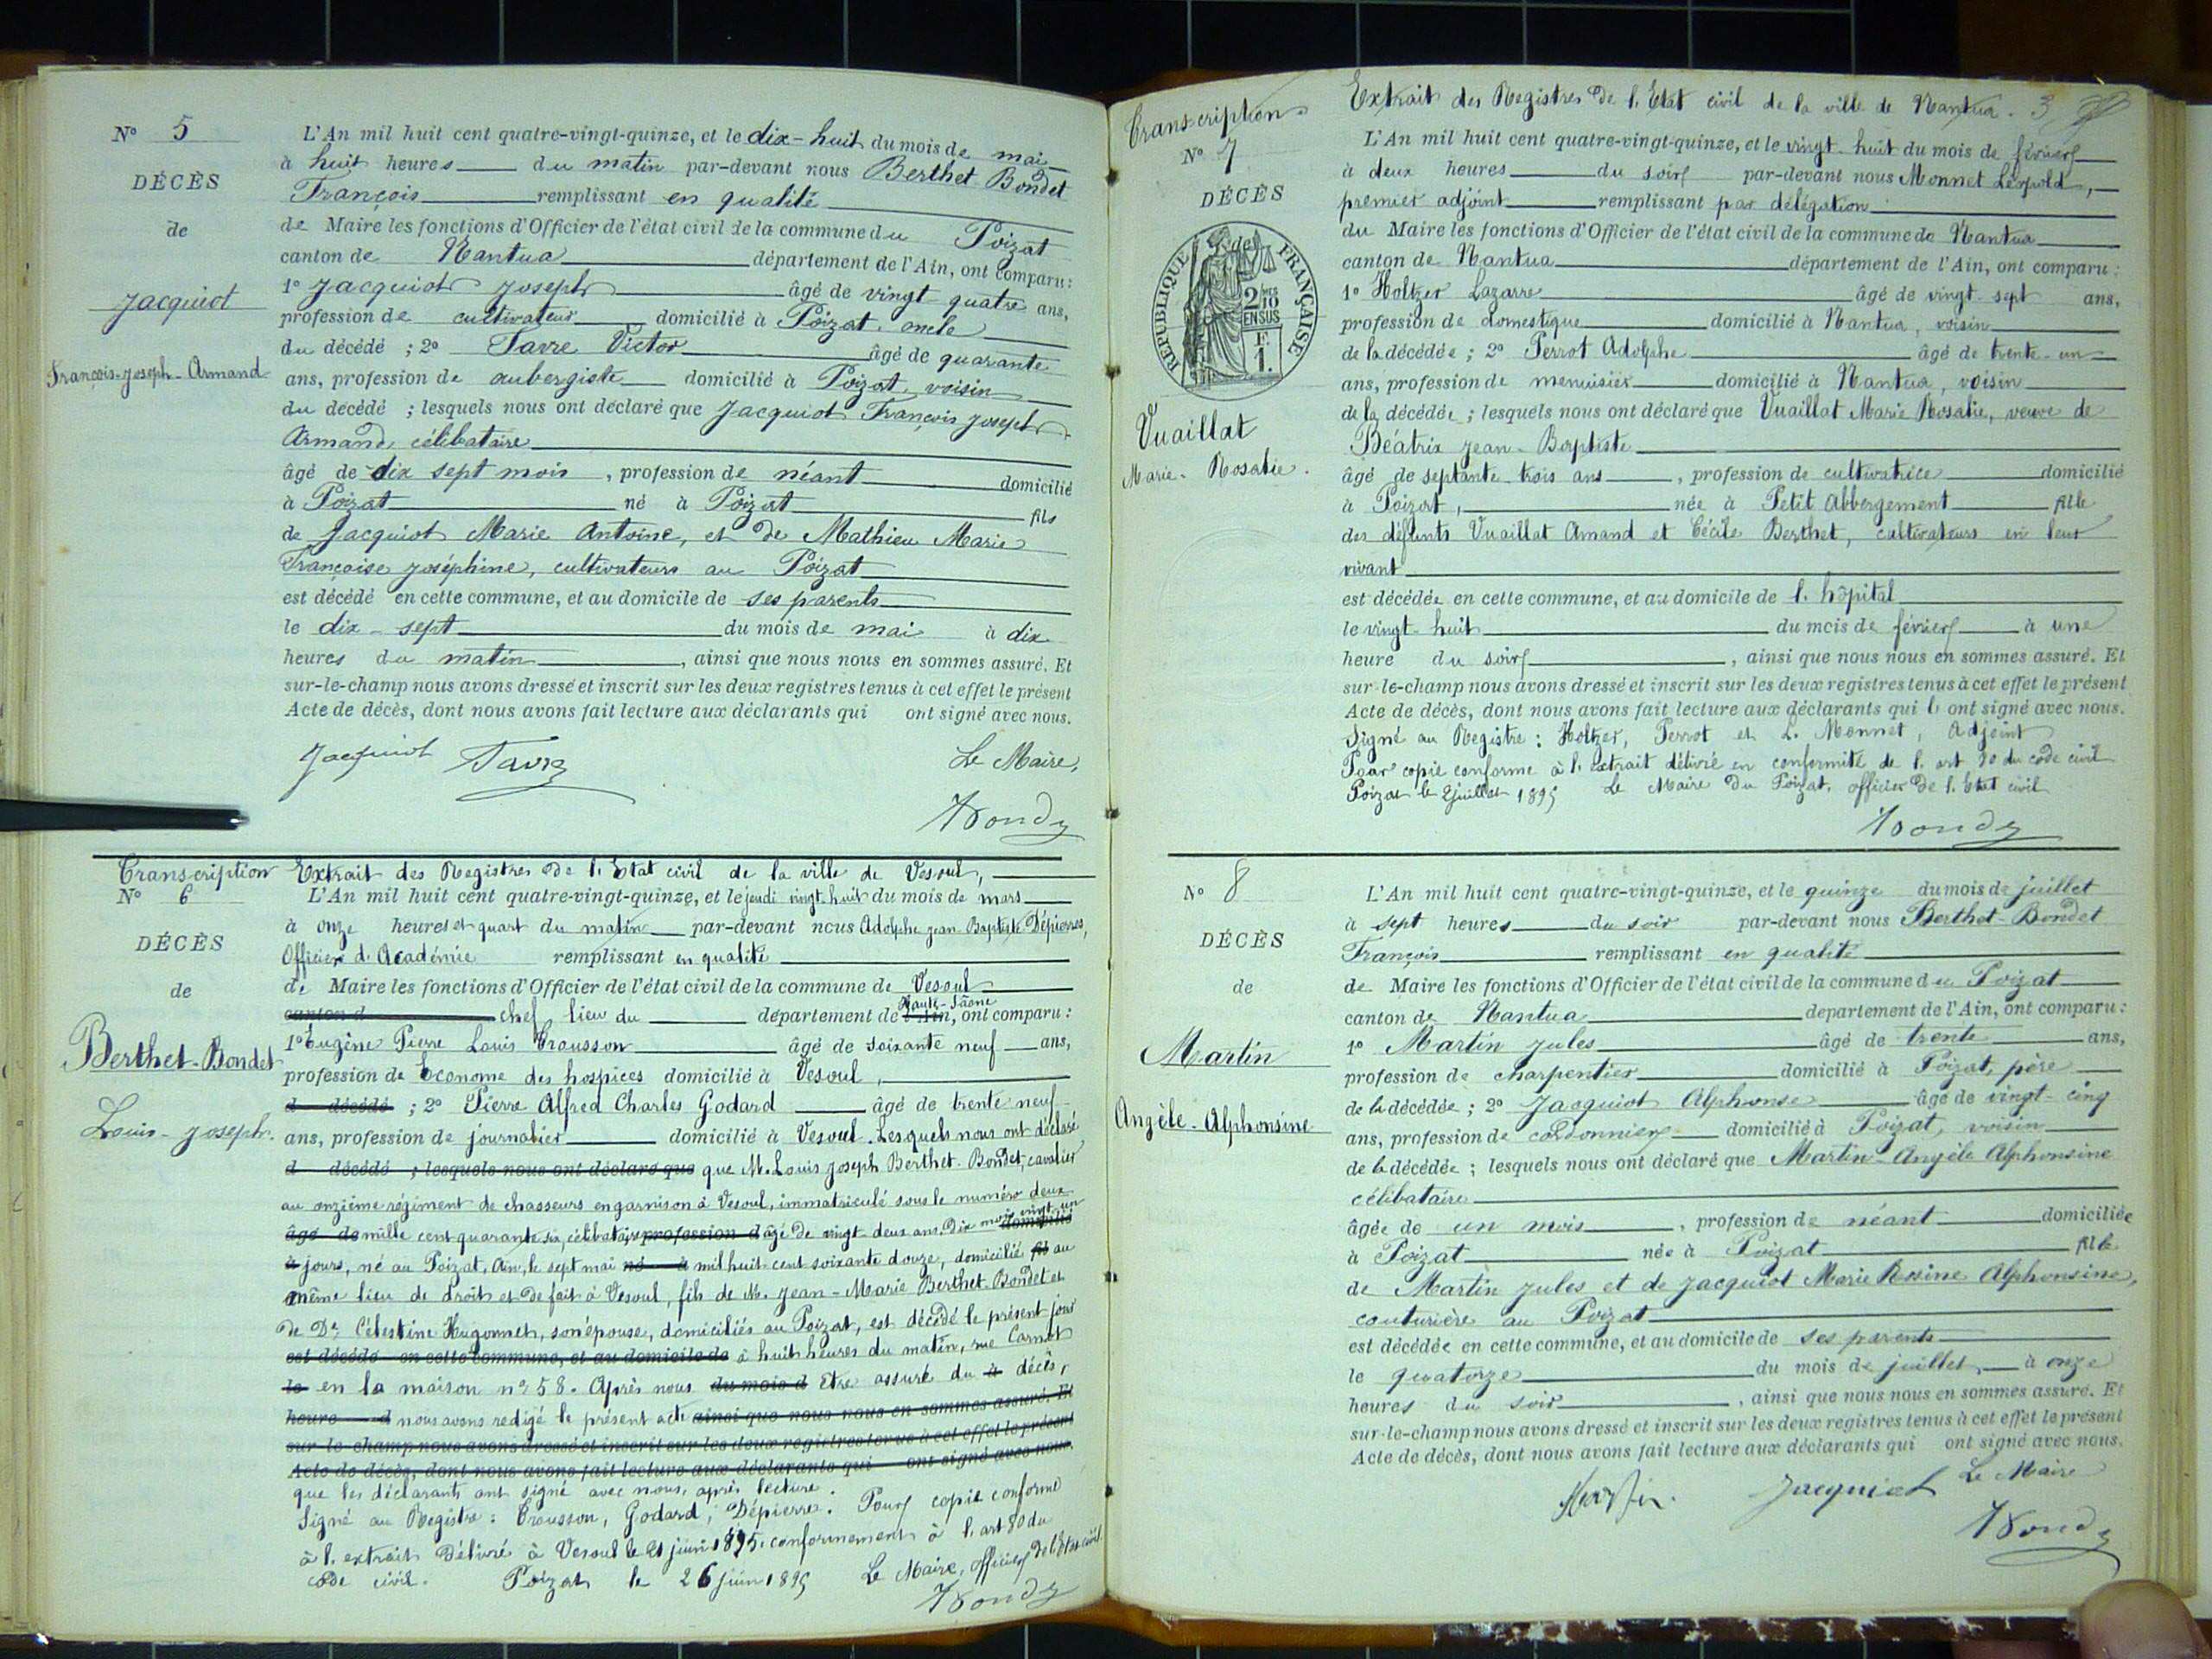 N° 5
DÉCÈS
de
Jacquiot
François-Joseph-Armand
L'An mil huit cent quatre-vingt-quinze, et le dix-huit du mois de mai
à huit heures du matin par-devant nous Berthet-Bondet
François remplissant en qualité
de Maire les fonctions d'Officier de l'état civil de la commune du Poizat
canton de Nantua département de l'Ain, ont comparu:
1° Jacquiot Joseph âgé de vingt quatre ans,
profession de cultivateur domicilié à Poizat, oncle
du décédé ; 2° Favre Victor âgé de quarante
ans, profession de aubergiste domicilié à Poizat, voisin
du décédé ; lesquels nous ont déclaré que Jacquiot François Joseph
Armand, célibataire
âgé de dix sept mois, profession de néant domicilié
à Poizat né à Poizat fils
de Jacquiot Marie Antoine, et de Mathieu Marie
Françoise Joséphine, cultivateurs au Poizat
est décédé en cette commune, et au domicile de ses parents
le dix-sept du mois de mai à dix
heures du matin, ainsi que nous nous en sommes assuré. Et
sur-le-champ nous avons dressé et inscrit sur les deux registres tenus à cet effet le présent
Acte de décès, dont nous avons fait lecture aux déclarants qui ont signé avec nous.
Jacquiot Favre Le Maire,
Bondet
Transcription
N° 6
DÉCÈS
de
Berthet-Bondet
Louis-Joseph.
Extrait des Registres de l'Etat civil de la ville de Vesoul,
L'An mil huit cent quatre-vingt-quinze, et le jeudi vingt-huit du mois de mars
à onze heures et quart du matin par-devant nous Adolphe Jean-Baptiste Dépierres,
Officier d'Académie remplissant en qualité
de Maire les fonctions d'Officier de l'état civil de la commune de Vesoul
canton d chef lieu du département de l'Ain Haute-Saône, ont comparu :
1° Eugène Pierre Louis Crousson âgé de soixante neuf ans,
profession de Econome des hospices domicilié à Vesoul,
d décédé ; 2° Pierre Alfred Charles Godard âgé de trente neuf
ans, profession de journalier domicilié à Vesoul. Lesquels nous ont déclaré
d décédé ; lesquels nous ont déclaré que que M. Louis Joseph Berthet-Bondet, cavalier
au onzième régiment de chasseurs en garnison à Vesoul, immatriculé sous le numéro deux
âgé de mille cent quarante six, célibataire profession d âgé de vingt deux ans, dix mois vingt un domicilié
à jours, né au Poizat, Ain, le sept mai né à mil huit cent soixante douze, domicilié fil au
même lieu de droit et de fait à Vesoul, fils de M. Jean-Marie Berthet-Bondet et
de De Célestine Hugonnet, son épouse, domiciliés au Poizat, est décédé le présent jour
est décédé en cette commune, et au domicile de à huit heures du matin, rue Carnot
le en la maison n° 58. Après nous du mois d être assuré du à décès,
heure d nous avons rédigé le présent acte ainsi que nous nous en sommes assuré. Et
sur-le-champ nous avons dressé et inscrit sur les deux registres tenus à cet effet le présent
Acte de décès, dont nous avons fait lecture aux déclarants qui ont signé avec nous.
que les déclarants ont signé avec nous, après lecture.
Signé au Registre : Crousson, Godard, Dépierres. Pour copie conforme
à l'extrait délivré à Vesoul le 21 juin 1895. conformément à l'art 80 du
code civil. Poizat le 26 juin 1895 Le Maire, officier de l'Etat civil
Bondet
Transcription
N° 7
DÉCÈS
de
RÉPUBLIQUE FRANÇAISE
2/10 EN SUS
F. 1.
Vuaillat
Marie-Rosalie.
Extrait des Registres de l'Etat civil de la ville de Nantua. 3
L'An mil huit cent quatre-vingt-quinze, et le vingt-huit du mois de février
à deux heures du soir par-devant nous Monnet Léopold,
premier adjoint remplissant par délégation
du Maire les fonctions d'Officier de l'état civil de la commune de Nantua
canton de Nantua département de l'Ain, ont comparu :
1° Holtzer Lazarre âgé de vingt-sept ans,
profession de domestique domicilié à Nantua, voisin
de la décédée ; 2° Perrot Adolphe âgé de trente-un
ans, profession de menuisier domicilié à Nantua, voisin
de la décédée ; lesquels nous ont déclaré que Vuaillat Marie Rosalie, veuve de
Béatrix Jean-Baptiste
âgé de septante-trois ans, profession de cultivatrice domicilié
à Poizat, née à Petit Abbergement fille
des défunts Vuaillat Amand et Cécile Berthet, cultivateurs en leur
vivant
est décédée en cette commune, et au domicile de l'hôpital
le vingt-huit du mois de février à une
heure du soir, ainsi que nous nous en sommes assuré. Et
sur-le-champ nous avons dressé et inscrit sur les deux registres tenus à cet effet le présent
Acte de décès, dont nous avons fait lecture aux déclarants qui ont signé avec nous.
Signé au Registre : Holtzer, Perrot et L. Monnet, Adjoint
Pour copie conforme à l'extrait délivré en conformité de l'art 80 du code civil
Poizat le 2 juillet 1895 Le Maire du Poizat, officier de l'Etat civil
Bondet
N° 8
DÉCÈS
de
Martin
Angèle-Alphonsine
L'An mil huit cent quatre-vingt-quinze, et le quinze du mois de juillet
à sept heures du soir par-devant nous Berthet-Bondet
François remplissant en qualité
de Maire les fonctions d'Officier de l'état civil de la commune du Poizat
canton de Nantua département de l'Ain, ont comparu :
1° Martin Jules âgé de trente ans,
profession de charpentier domicilié à Poizat, père
de la décédée ; 2° Jacquiot Alphonse âgé de vingt-cinq
ans, profession de cordonnier domicilié à Poizat, voisin
de la décédée ; lesquels nous ont déclaré que Martin-Angèle Alphonsine
célibataire
âgée de un mois, profession de néant domiciliée
à Poizat née à Poizat fille
de Martin Jules et de Jacquiot Marie Rosine Alphonsine,
couturière au Poizat
est décédée en cette commune, et au domicile de ses parents
le quatorze du mois de juillet, à onze
heures du soir, ainsi que nous nous en sommes assuré. Et
sur-le-champ nous avons dressé et inscrit sur les deux registres tenus à cet effet le présent
Acte de décès, dont nous avons fait lecture aux déclarants qui ont signé avec nous.
Martin. Jacquiot Le Maire
Bondet